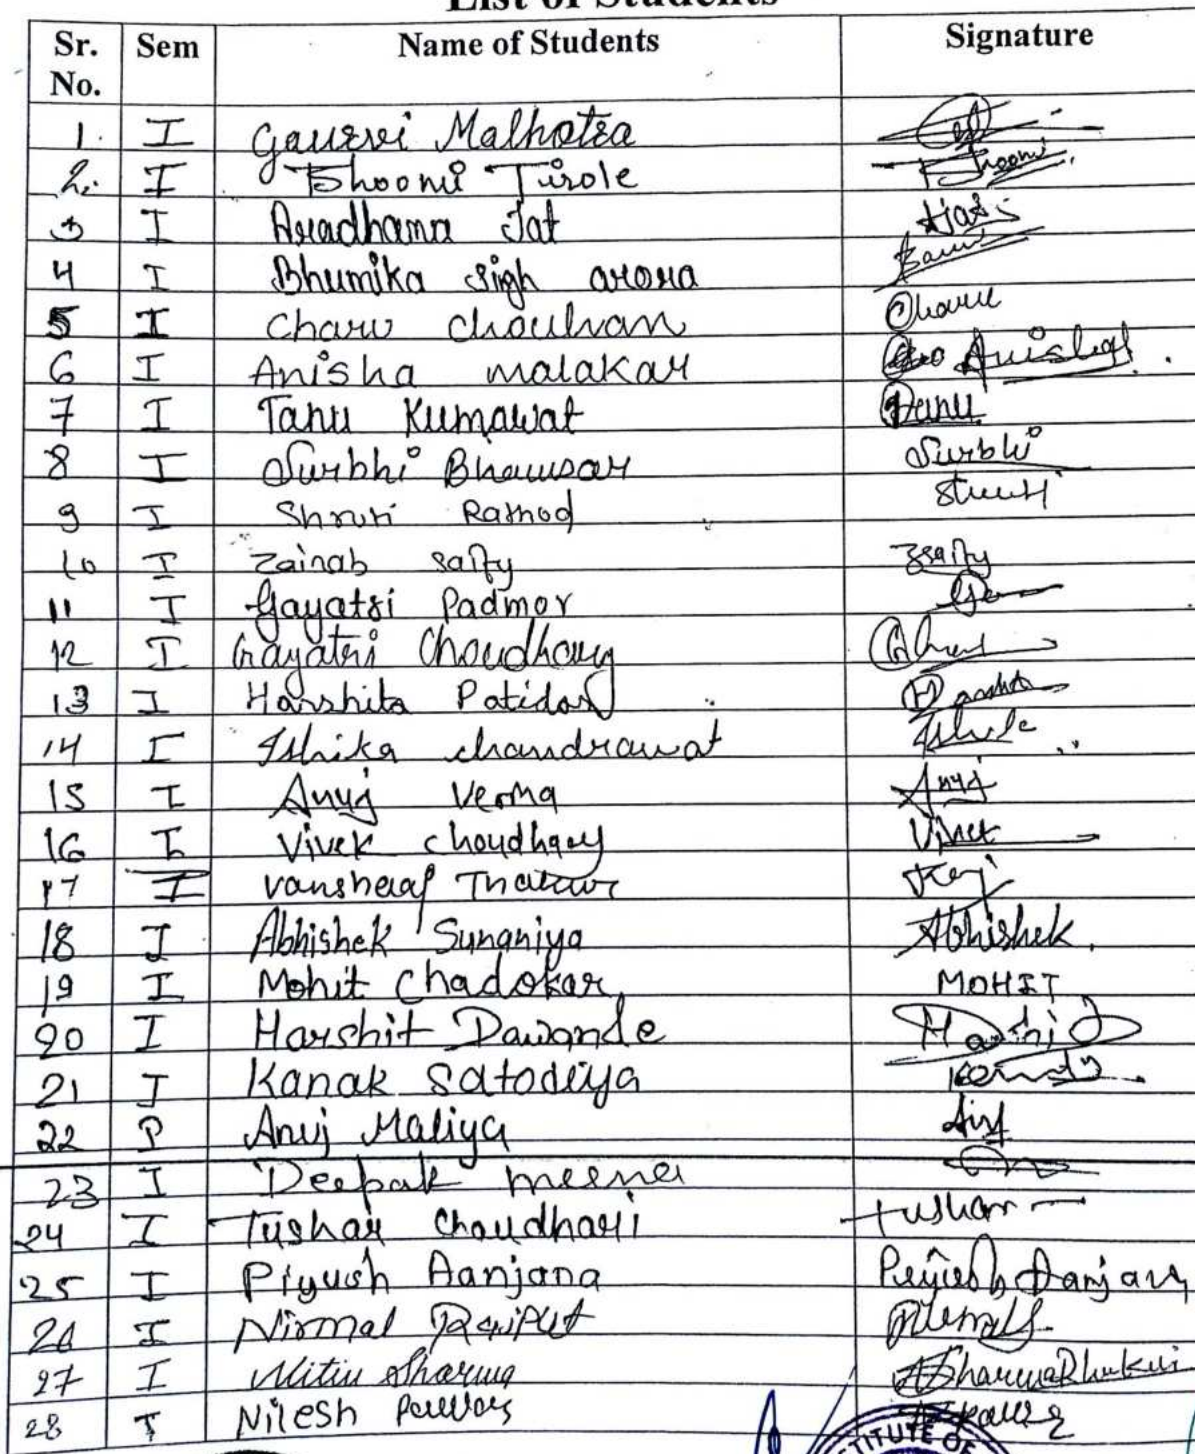 List of Students
Sr. No. Sem Name of Students Signature
1. I Gaurvi Malhotra
2. I Bhoomi Tirole Bhoomi
3 I Aradhana Jat AJat
4 I Bhumika sigh arora
5 I Charu chouhan Charu
6 I Anisha malakar Anisha
7 I Tanu Kumawat Tanu
8 I Surbhi Bhawsar Surbhi
9 I Shruti Rathod Shruti
10 I Zainab saify Zsaify
11 I Gayatri Padmor
12 I Gayatri Choudhary
13 I Harshita Patidar Harshita
14 I Ishika chandrawat
15 I Anuj Verma Anuj
16 I Vivek choudhary Vivek
17 I vanshraj Thakur
18 I Abhishek Sunaniya Abhishek.
19 I Mohit Chadokar MOHIT
20 I Harshit Dawande Harshit
21 I Kanak Satodiya
22 Anuj Maliya
23 I Deepak meena
24 I Tushar Choudhari Tushar
25 I Piyush Aanjana Piyush Aanjana
26 I Nirmal Rajput
27 I Nitin Sharma
28 I Nilesh Pawar
TITUTE OF